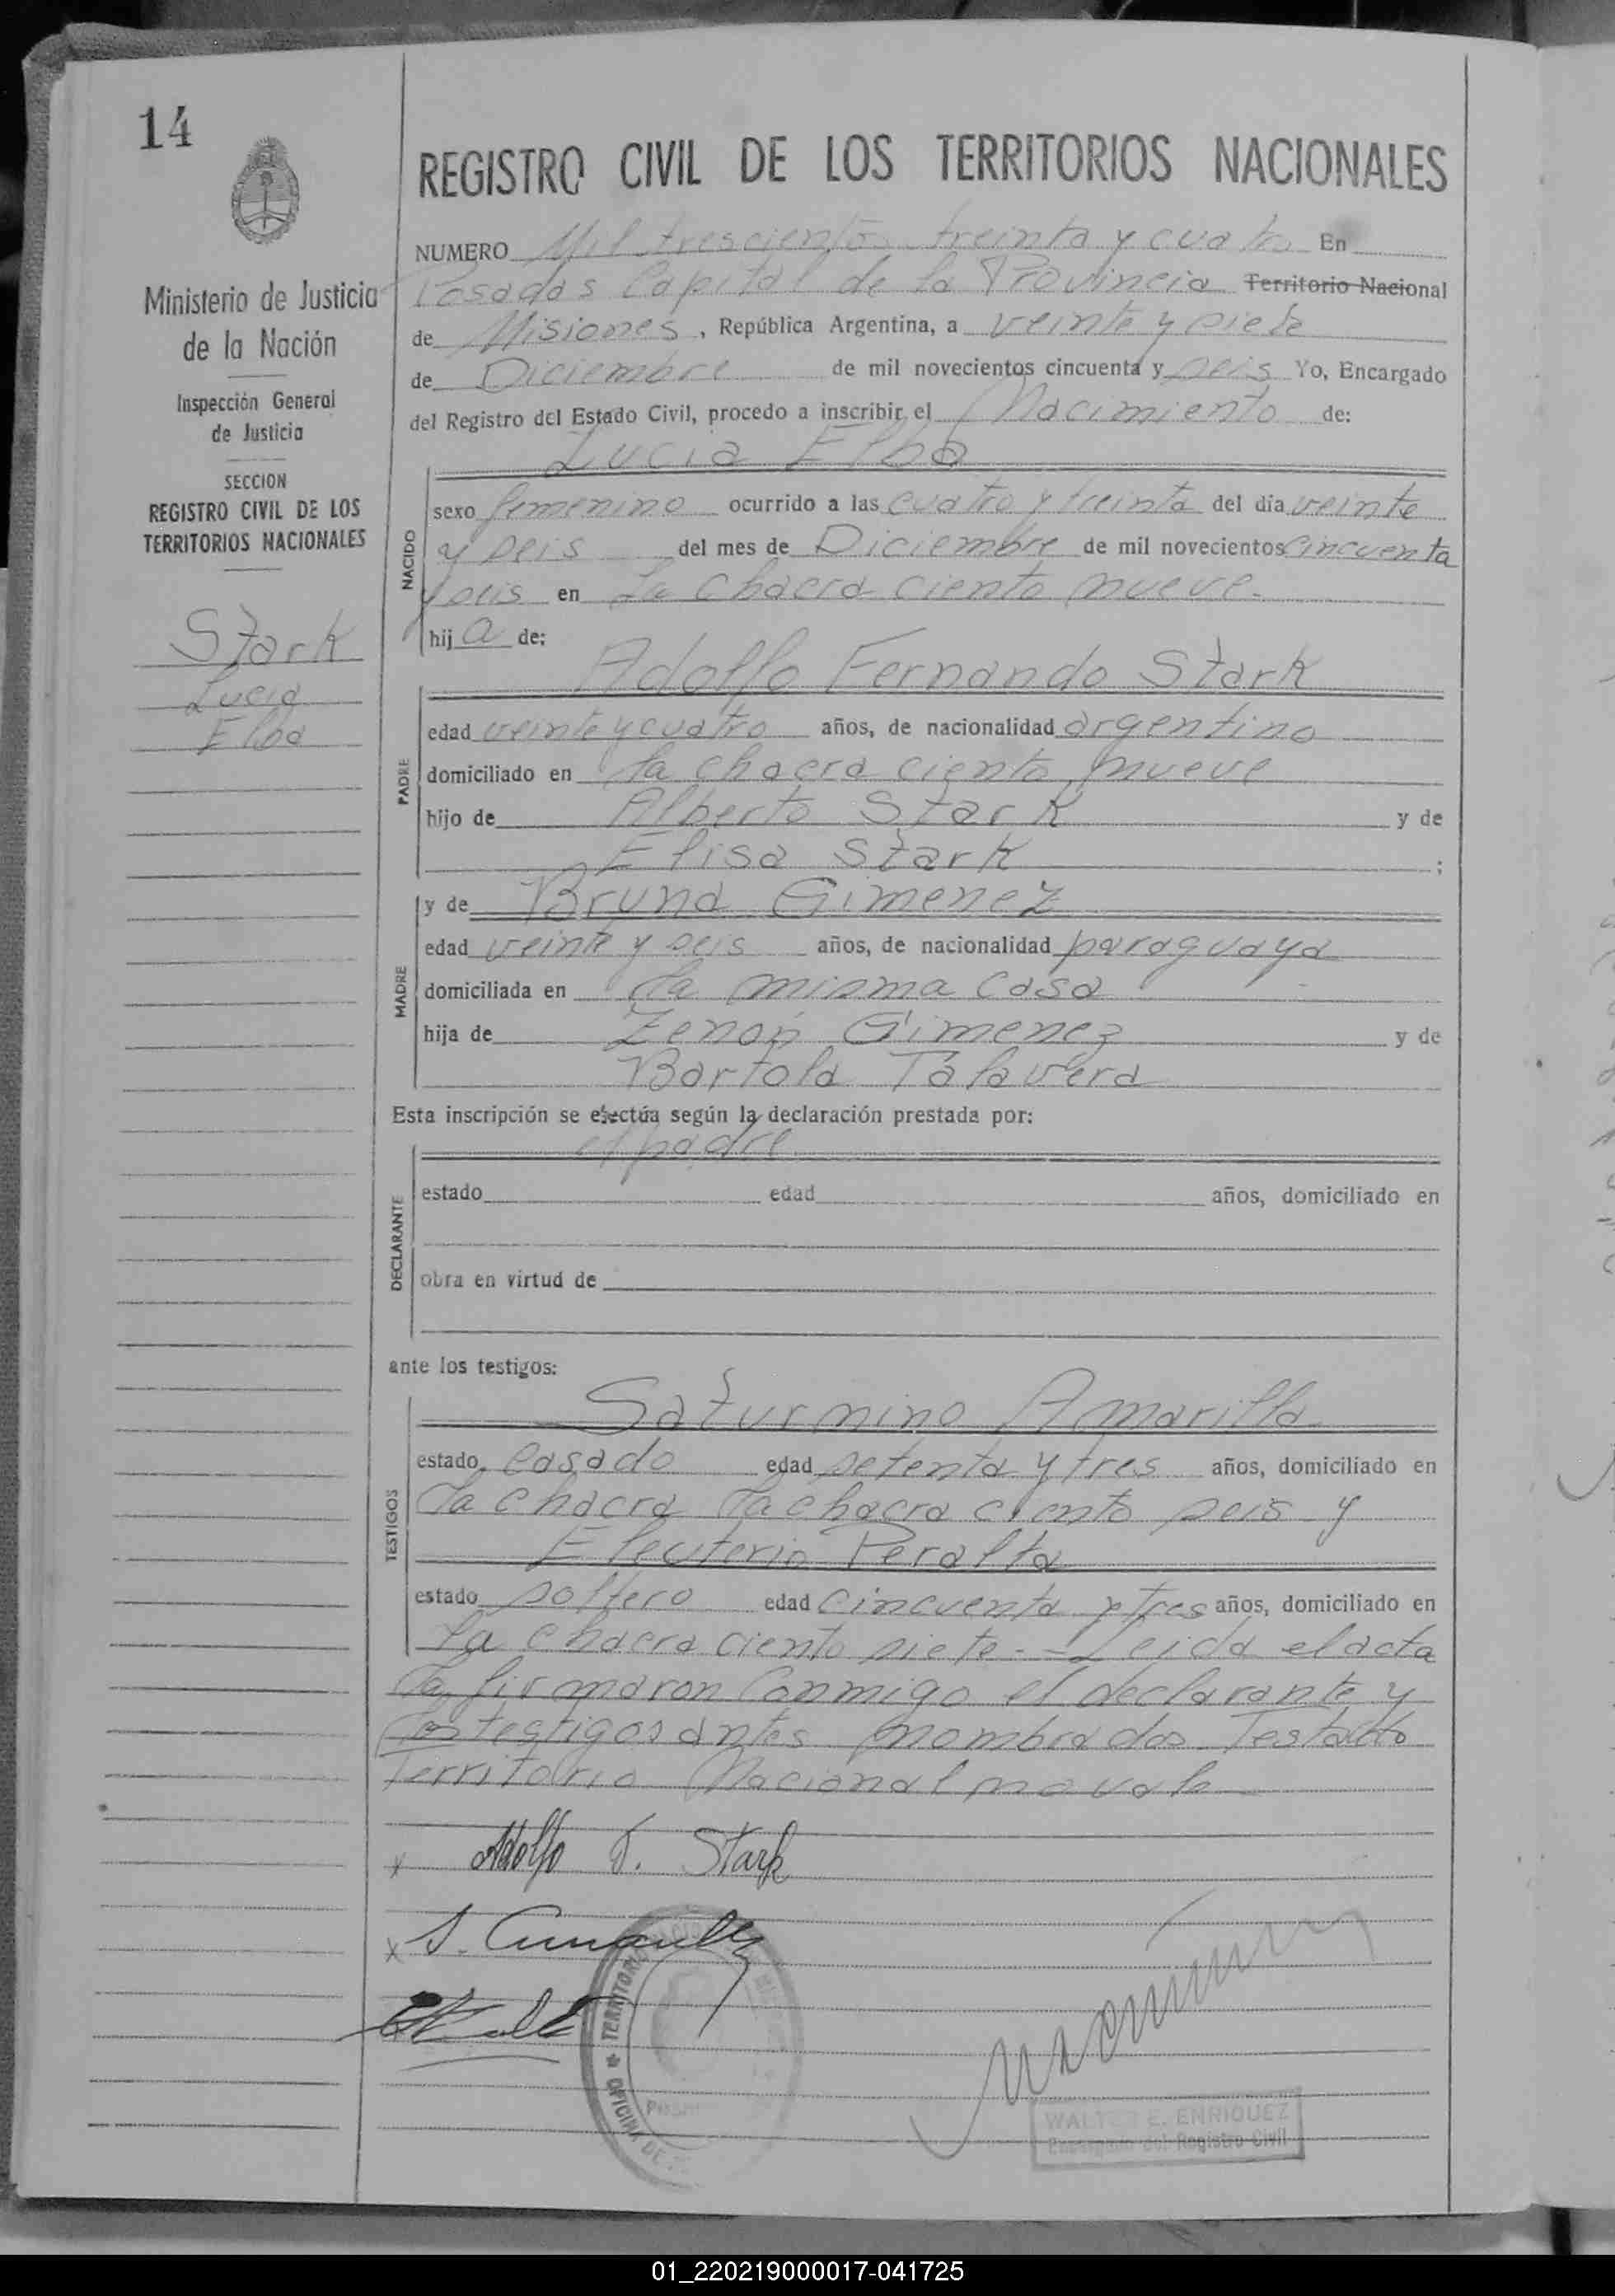 14
REGISTRO CIVIL DE LOS TERRITORIOS NACIONALES
Ministerio de Justicia
de la Nación
Inspección General
de Justicia
SECCION
REGISTRO CIVIL DE LOS
TERRITORIOS NACIONALES
Stark
Lucia
Elba
NUMERO Mil trescientos treinta y cuatro En
Posadas Capital de la Provincia Territorio Nacional
de Misiones, República Argentina, a veinte y siete
de Diciembre de mil novecientos cincuenta y seis Yo, Encargado
del Registro del Estado Civil, procedo a inscribir el Nacimiento de:
Lucia Elba
NACIDO
sexo femenino ocurrido a las cuatro y treinta del día veinte
y seis del mes de Diciembre de mil novecientos cincuenta
y seis en La chacra ciento nueve.
hija de:
Adolfo Fernando Stark
PADRE
edad veinte y cuatro años, de nacionalidad argentino
domiciliado en la chacra ciento nueve
hijo de Alberto Stark y de
Elisa Stark ;
MADRE
y de Bruna Gimenez
edad veinte y seis años, de nacionalidad paraguaya
domiciliada en la misma casa
hija de Zenón Gimenez y de
Bartola Talavera
Esta inscripción se efectúa según la declaración prestada por:
el padre
DECLARANTE
estado edad años, domiciliado en
obra en virtud de
ante los testigos:
TESTIGOS
Saturnino Amarilla
estado casado edad setenta y tres años, domiciliado en
La chacra La chacra ciento seis y
Eleuterio Peralta
estado soltero edad cincuenta y tres años, domiciliado en
La chacra ciento siete.- Leida el acta
la firmaron conmigo el declarante y
los testigos antes nombrados Testado
Territorio Nacional no vale
x Adolfo F. Stark
x S.
TERRITOR
OFICINA DE
WALTER E. ENRIQUEZ
Encargado del Registro Civil
01_220219000017-041725